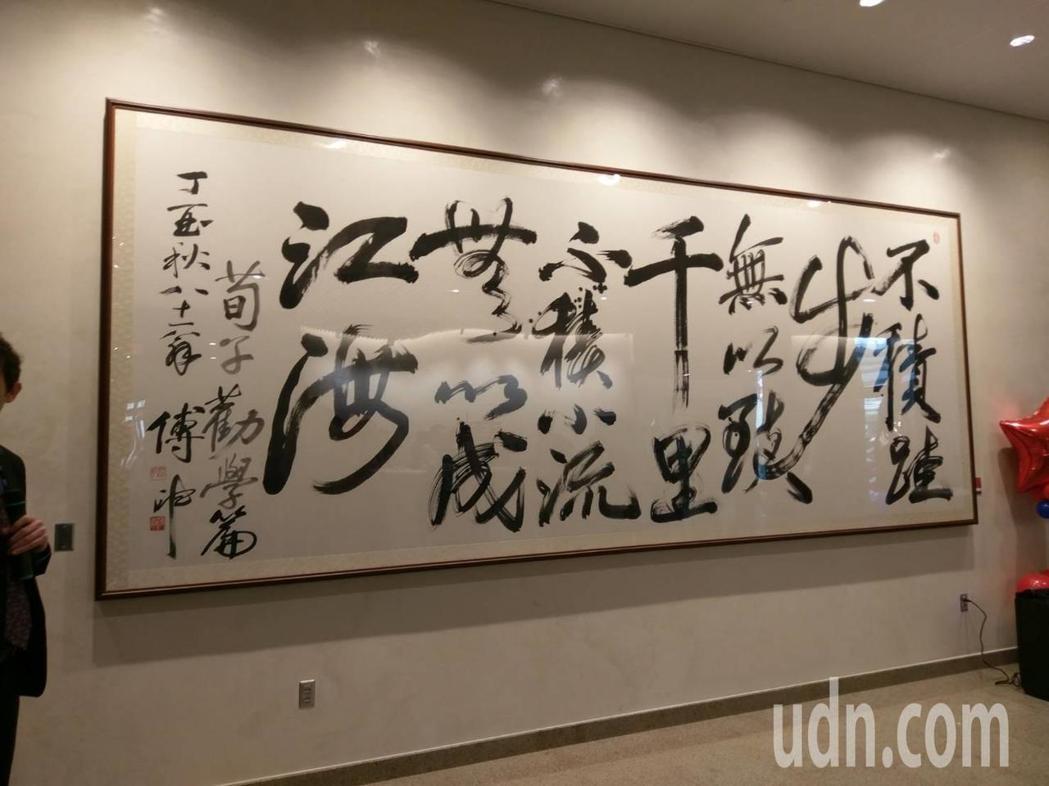 不積蹞
步
無以致
千里
不積小流
無以成
江海
荀子勸學篇
丁酉秋八十二翁
傅申
udn.com